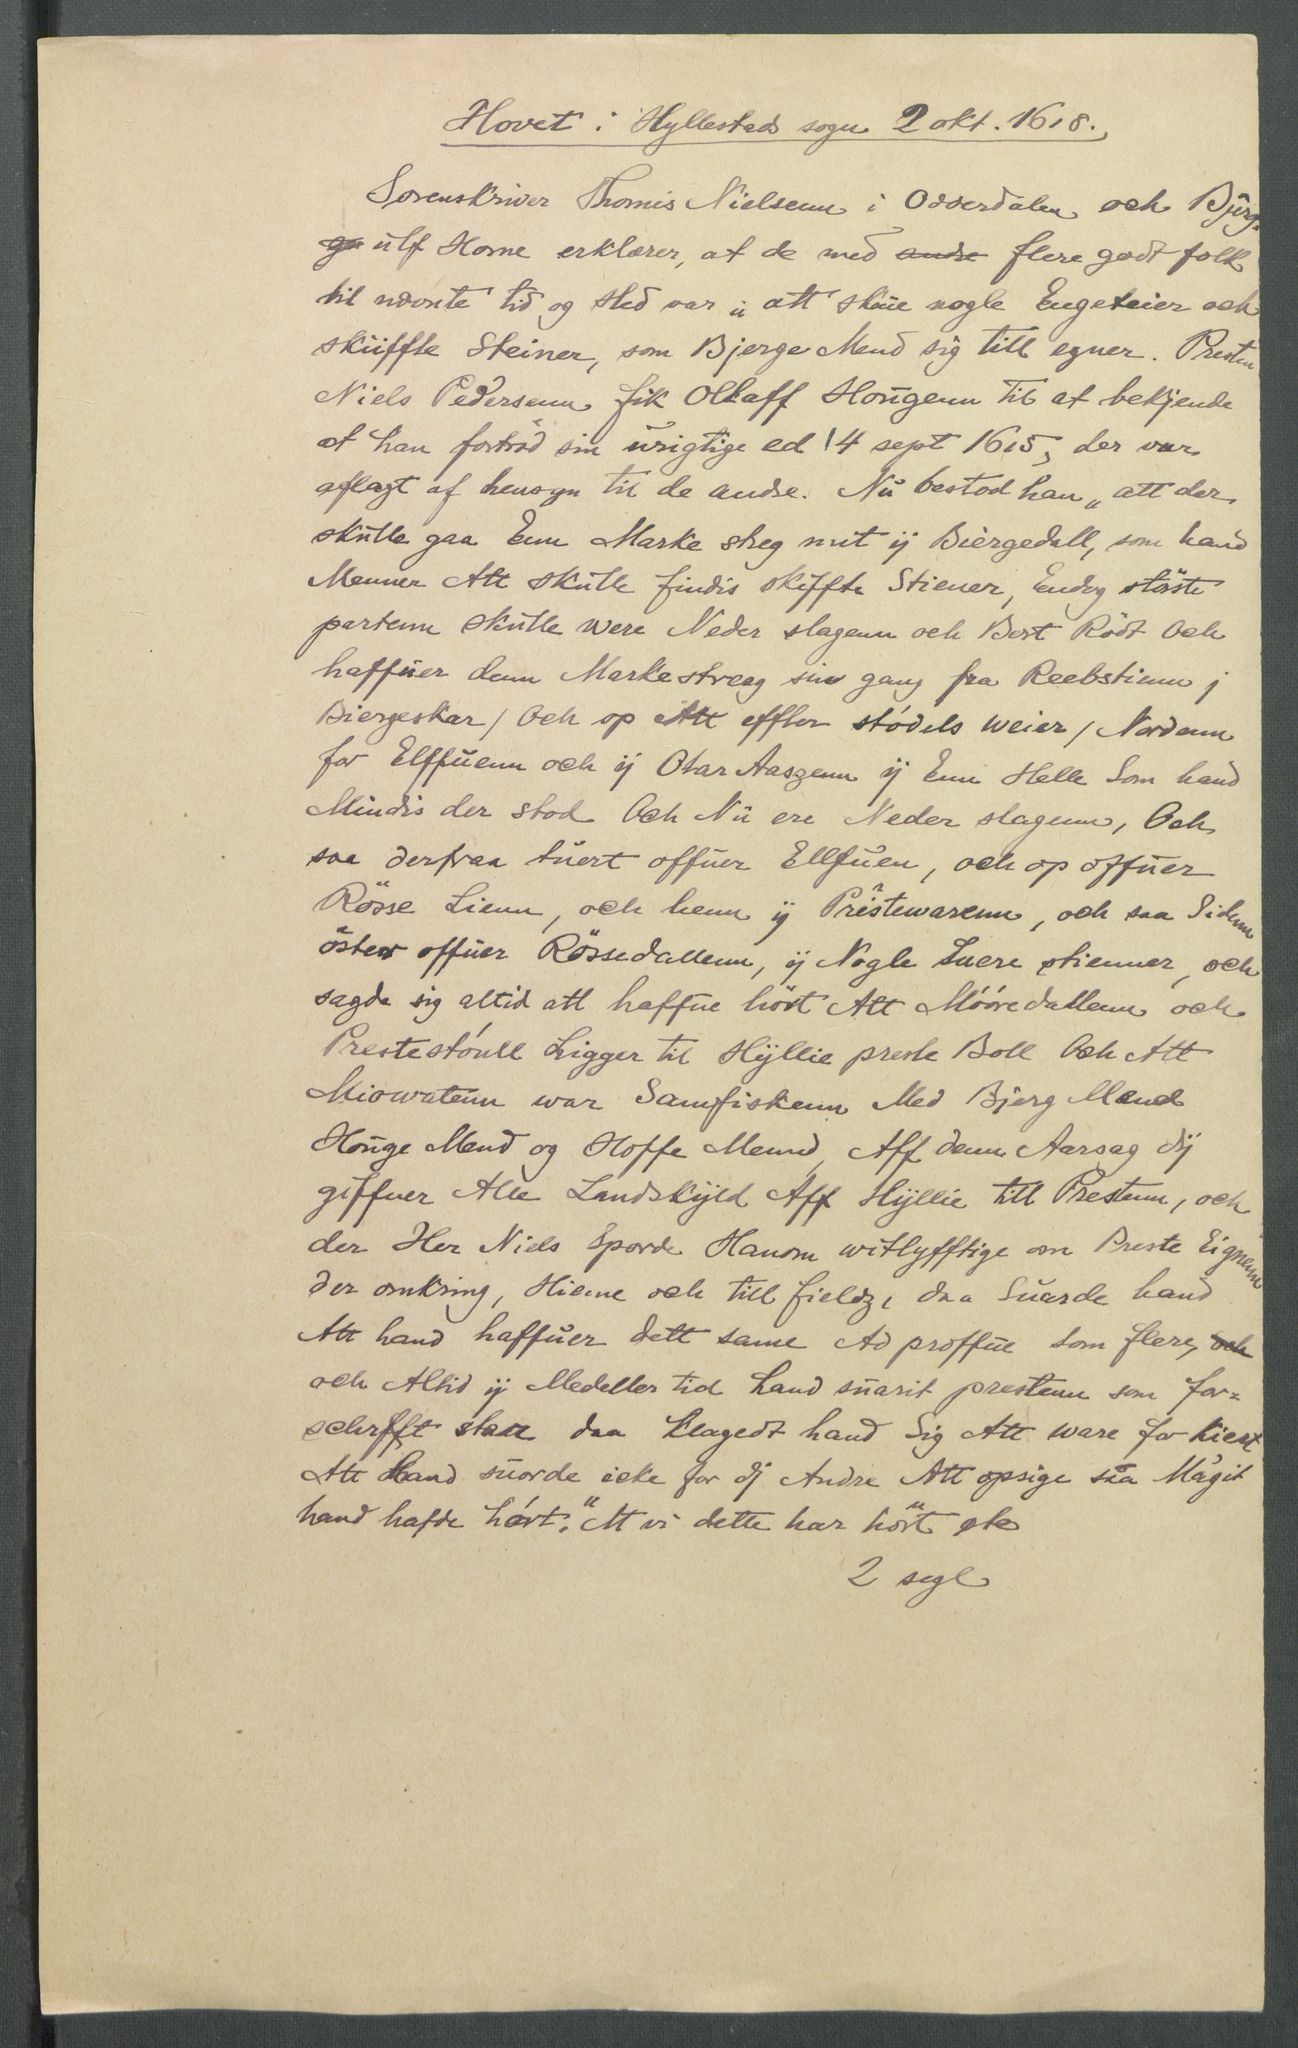 Hovet i Hyllestad sogn 2 okt. 1618.
Sorenskriver Thomis Nielsenn i Odderdalen och Bjúrg-
ulf Horne erklærer, at de med andre flere godt folk
til nævnte tid og sted var „ att skue nogle Engeteier och
skiiffte Steiner, som Bjerge Mend sig till egner. Presten
Niels Pedersenn fik Ollaff Hougenn til at bekjende
at han fortröd sin urigtige ed 14 sept 1615, der var
aflagt af hensyn til de andre. Nu bestod han „att der
skulle gaa Enn Marke streg mit ij Biergedall, som hand
Menner Att skulle findis skiffte Stiener, Endog störste
partenn skulle were Neder slagenn och Bort Rödt Och
haffuer denn Markestreeg sin gang fra Reebstienn j
Biergeskar / Och op Att effter stódels weier / Nordenn
for Elffuenn och ij Otar Aaszenn ij Enn Helle Som hand
Mindis der stod Och Nu ere Neder slagenn, Och
saa derfraa tuert offuer Ellfuen, och op offuer
Rösse Lienn, och henn ij Prestewarenn, och saa Sidenn
öster offuer Rössedallenn, ij Nogle Suere stienner, och
sagde sig altid att haffue hört Att Móóredallenn och
Prestestóull Ligger til Hÿllie preste Boll Och Att
Miowatenn war Samfiskenn Med Bjerg Mend
Houge Mend og Hoffe Mennd, Aff denn Aarsag dij
giffuer Alle Landskÿld Aff Hÿllie till Prestenn, och
der Her Niels Sporde Hanom witlyfftige om Preste Eignenn
der omkring, Hieme och till fieldz, daa Suarde hand
Att hand haffuer dett same Ad proffue Som flere, och
och Altid ij Medeller tid hand suarit prestenn som for-
schrfft staar daa klagedt hand Sig Att ware for kiert
Att Hand suorde icke for dj Andre Att opsige saa Mágit
hand hafde hórt." At vi dette har hört etc
2 segl